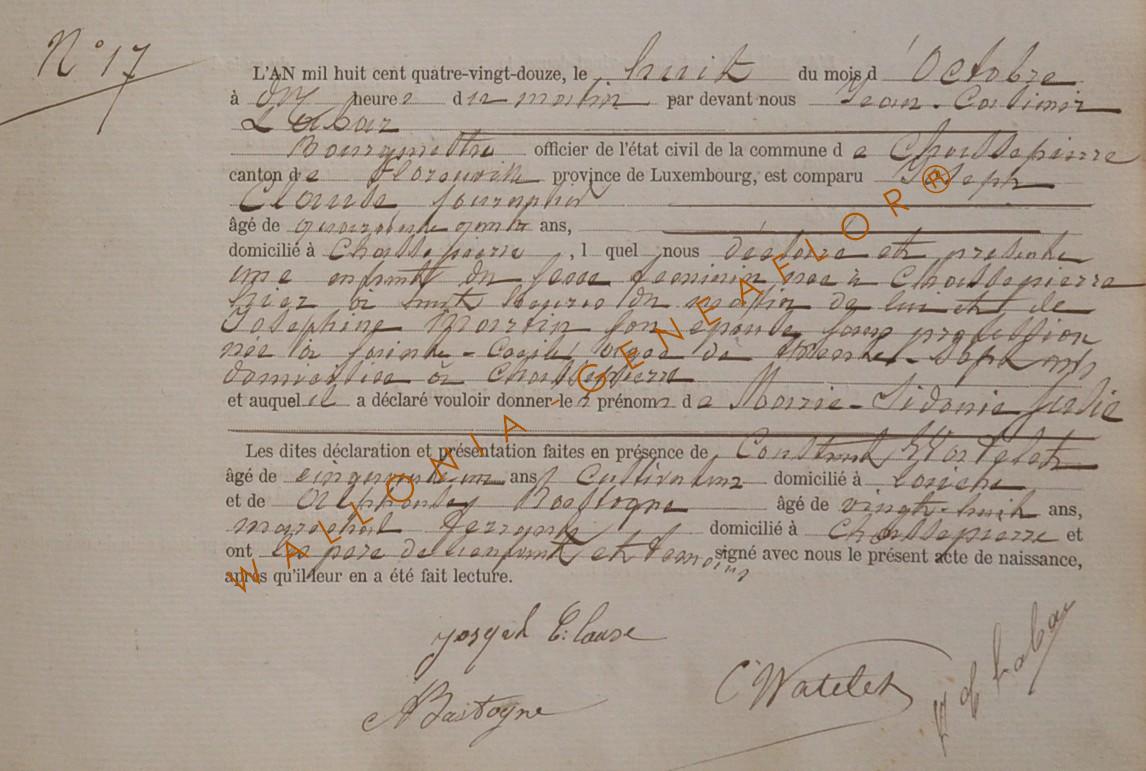 N° 17
L'AN mil huit cent quatre-vingt-douze, le huit du mois d'Octobre
à dix heures du matin par devant nous Jean-Casimir
Labar
Bourgmestre officier de l'état civil de la commune de Chassepierre
canton de Florenville province de Luxembourg, est comparu Joseph
Claude journalier
âgé de quarante ans,
domicilié à Chassepierre, l quel nous déclare et présente
une enfant du sexe féminin née à Chassepierre
hier à huit heures du matin de lui et de
Joséphine Martin son épouse sans profession
née à Sainte-Cécile âgée de trente-sept ans
domiciliée à Chassepierre
et auquel il a déclaré vouloir donner les prénoms de Marie-Sidonie
Les dites déclaration et présentation faites en présence de Constant Watelet
âgé de ans, cultivateur domicilié à
et de Alphonse Bastogne âgé de vingt-huit ans,
maréchal ferrant domicilié à Chassepierre et
ont le père de l'enfant et témoins signé avec nous le présent acte de naissance,
après qu'il leur en a été fait lecture.
Joseph Claude
C Watelet
Labar
A Bastogne
WALLONIA-GENEAFLOR®